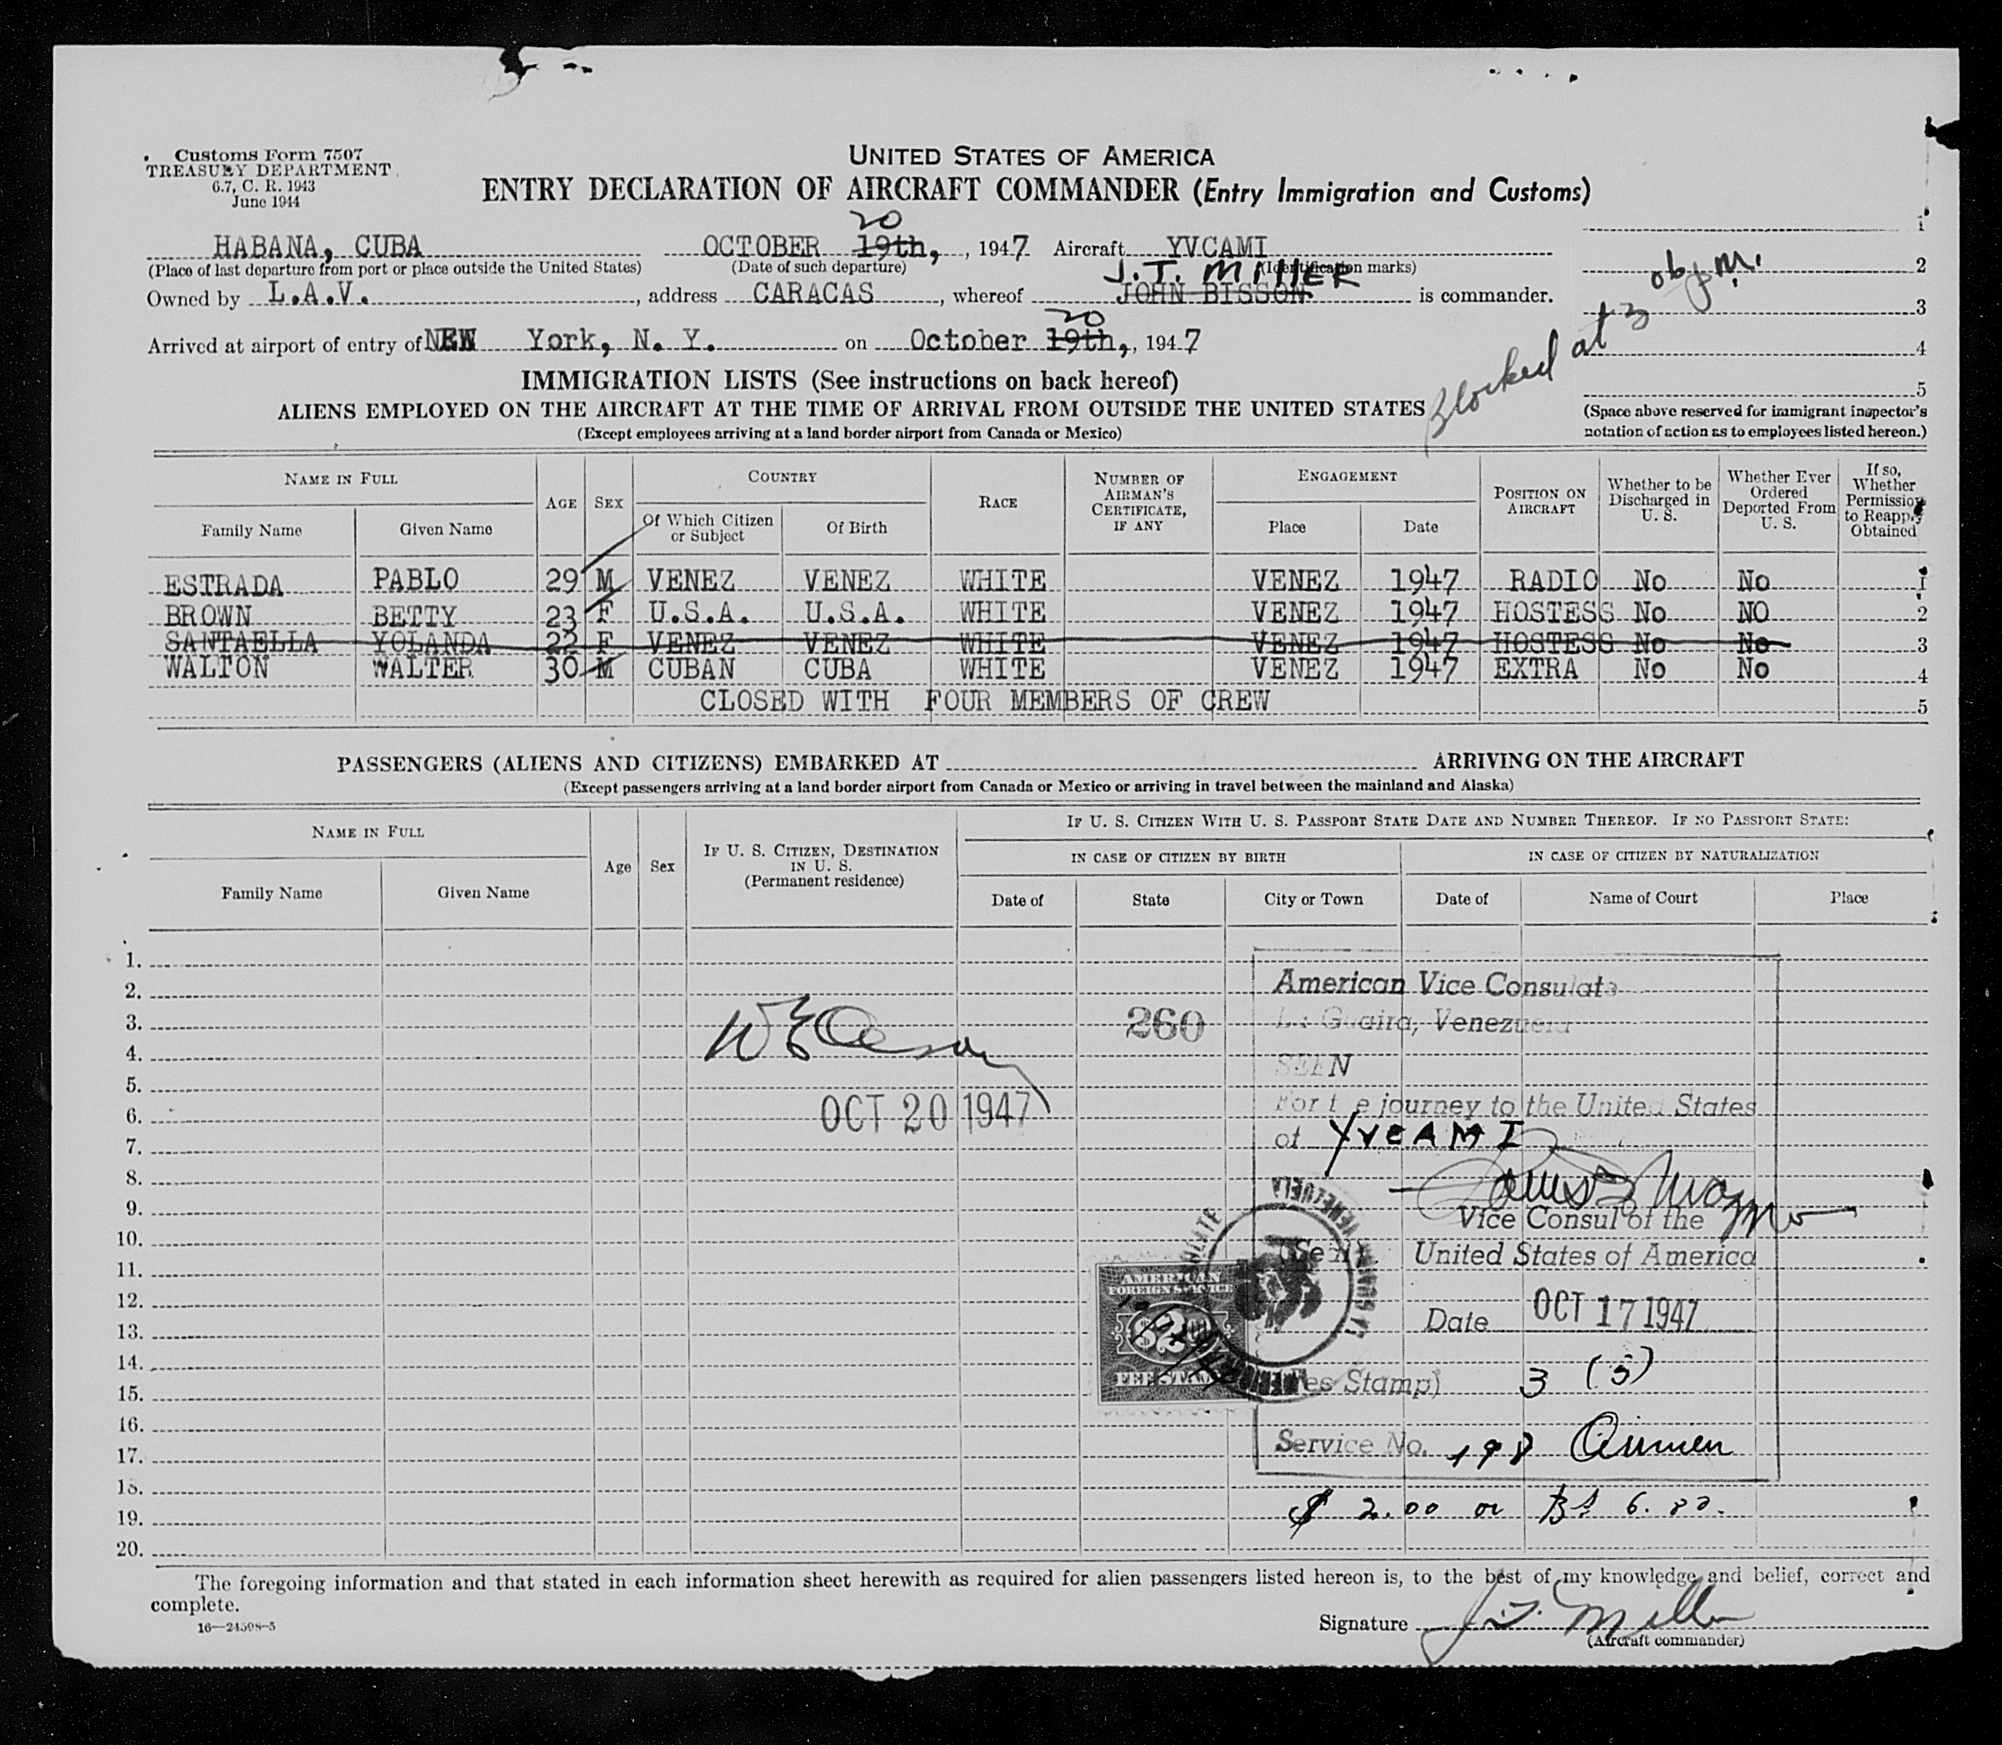 Customs Form 7507
TREASURY DEPARTMENT
6.7, C. R. 1943
June 1944
UNITED STATES OF AMERICA
ENTRY DECLARATION OF AIRCRAFT COMMANDER (Entry Immigration and Customs)
20
HABANA, CUBA OCTOBER 19th, , 1947 Aircraft YVCAMI
(Place of last departure from port or place outside the United States) (Date of such departure) (Identification marks)
J.T. MILLER
Owned by L.A.V. , address CARACAS , whereof JOHN BISSON is commander.
20
Arrived at airport of entry of NEW York, N. Y. on October 19th, , 1947
1
2
3
4
5
Blocked at 3
IMMIGRATION LISTS (See instructions on back hereof)
ALIENS EMPLOYED ON THE AIRCRAFT AT THE TIME OF ARRIVAL FROM OUTSIDE THE UNITED STATES
(Except employees arriving at a land border airport from Canada or Mexico)
(Space above reserved for immigrant inspector's
notation of action as to employees listed hereon.)
NAME IN FULL AGE SEX COUNTRY RACE NUMBER OF AIRMAN'S CERTIFICATE, IF ANY ENGAGEMENT POSITION ON AIRCRAFT Whether to be Discharged in U. S. Whether Ever Ordered Deported From U. S. If so, Whether Permission to Reapply Obtained
Family Name Given Name Of Which Citizen or Subject Of Birth Place Date
ESTRADA PABLO 29 M VENEZ VENEZ WHITE VENEZ 1947 RADIO No No 1
BROWN BETTY 23 F U.S.A. U.S.A. WHITE VENEZ 1947 HOSTESS No NO 2
SANTAELLA YOLANDA 22 F VENEZ VENEZ WHITE VENEZ 1947 HOSTESS No No 3
WALTON WALTER 30 M CUBAN CUBA WHITE VENEZ 1947 EXTRA No No 4
CLOSED WITH FOUR MEMBERS OF CREW 5
PASSENGERS (ALIENS AND CITIZENS) EMBARKED AT ARRIVING ON THE AIRCRAFT
(Except passengers arriving at a land border airport from Canada or Mexico or arriving in travel between the mainland and Alaska)
NAME IN FULL Age Sex IF U. S. CITIZEN, DESTINATION IN U. S. (Permanent residence) IF U. S. CITIZEN WITH U. S. PASSPORT STATE DATE AND NUMBER THEREOF. IF NO PASSPORT STATE:
IN CASE OF CITIZEN BY BIRTH IN CASE OF CITIZEN BY NATURALIZATION
Family Name Given Name Date of State City or Town Date of Name of Court Place
1.
2.
3.
4.
5.
6.
7.
8.
9.
10.
11.
12.
13.
14.
15.
16.
17.
18.
19.
20.
260
OCT 20 1947
American Vice Consulate
La Guaira, Venezuela
SEEN
For the journey to the United States
of YVCAMI
Vice Consul of the
(Seal) United States of America
Date OCT 17 1947
(Fee Stamp) 3 (3)
Service No. 198
$ 2.00 or Bs
AMERICAN
FOREIGN SERVICE
$2
FEE STAMP
LA GUAIRA, VENEZUELA
The foregoing information and that stated in each information sheet herewith as required for alien passengers listed hereon is, to the best of my knowledge and belief, correct and
complete.
16—24598-5
Signature J. T. Miller
(Aircraft commander)